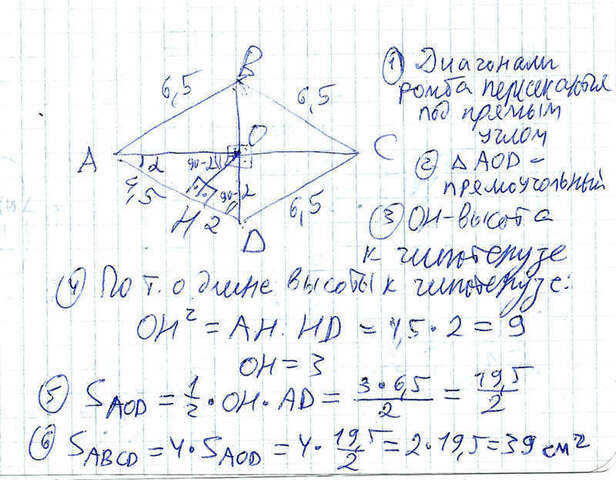 B
6,5
6,5
O
A
C
2
90-2
4,5
90-2
H
2
6,5
D
① Диагонали
ромба пересекаются
под прямым
углом
② △ AOD -
прямоугольный
③ OH-высота
к гипотенузе
④ По т. о длине высоты к гипотенузе:
OH² = AH · HD = 4,5 · 2 = 9
OH = 3
⑤ S AOD = 1/2 · OH · AD = 3·6,5/2 = 19,5/2
⑥ S ABCD = 4 · S AOD = 4 · 19,5/2 = 2 · 19,5 = 39 см²